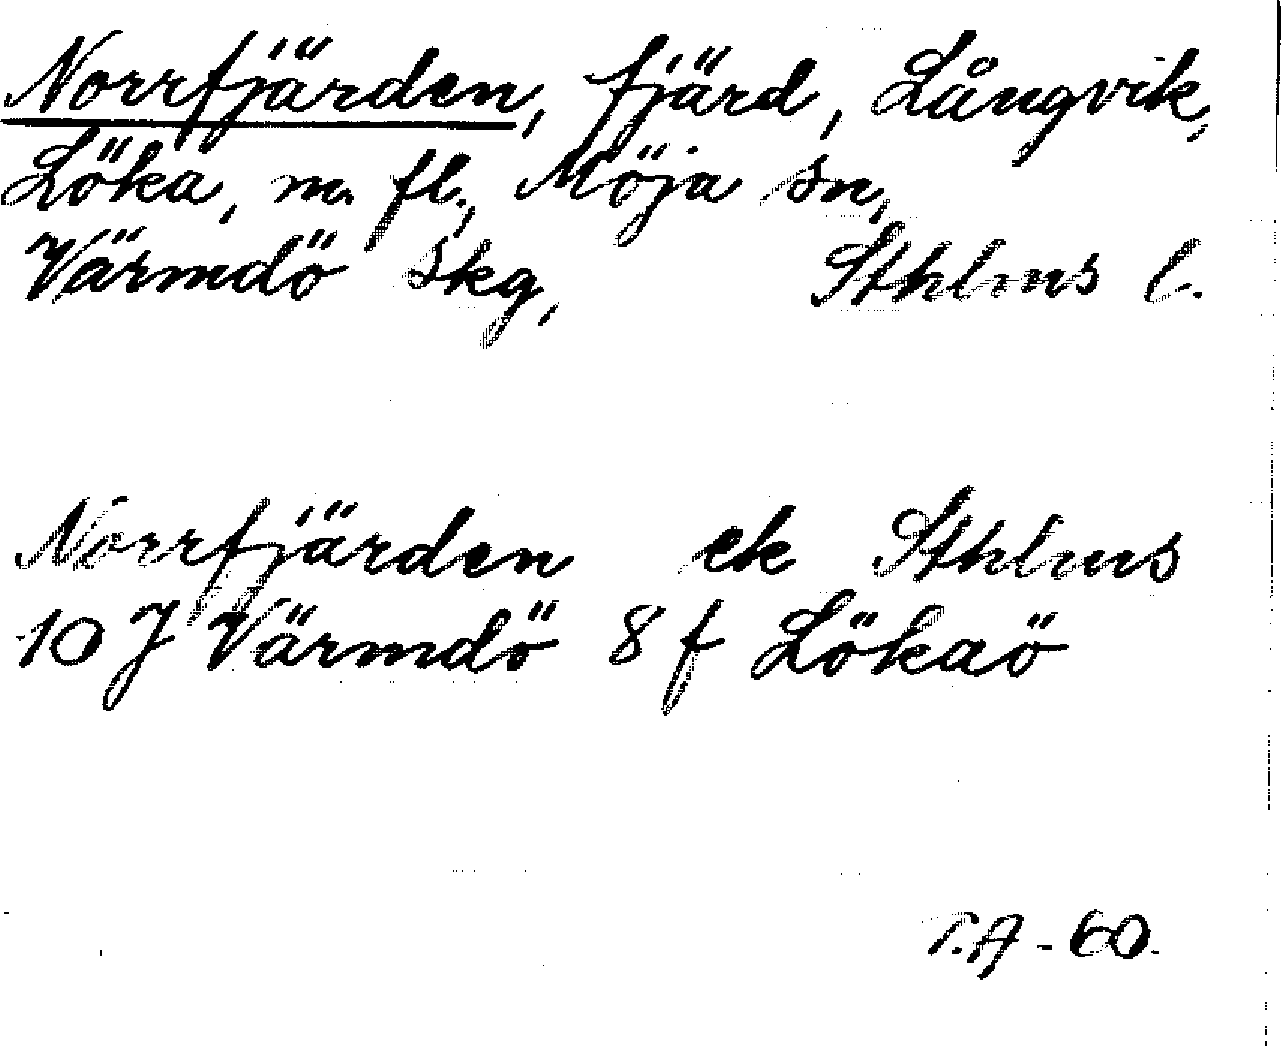 Norrfjärden, fjärd, Långvik,
Löka, m. fl., Möja sn,
Värmdö skg, Sthlms l.
Norrfjärden ek Sthlms
10 J Värmdö 8 f Lökaö
T.A - 60.